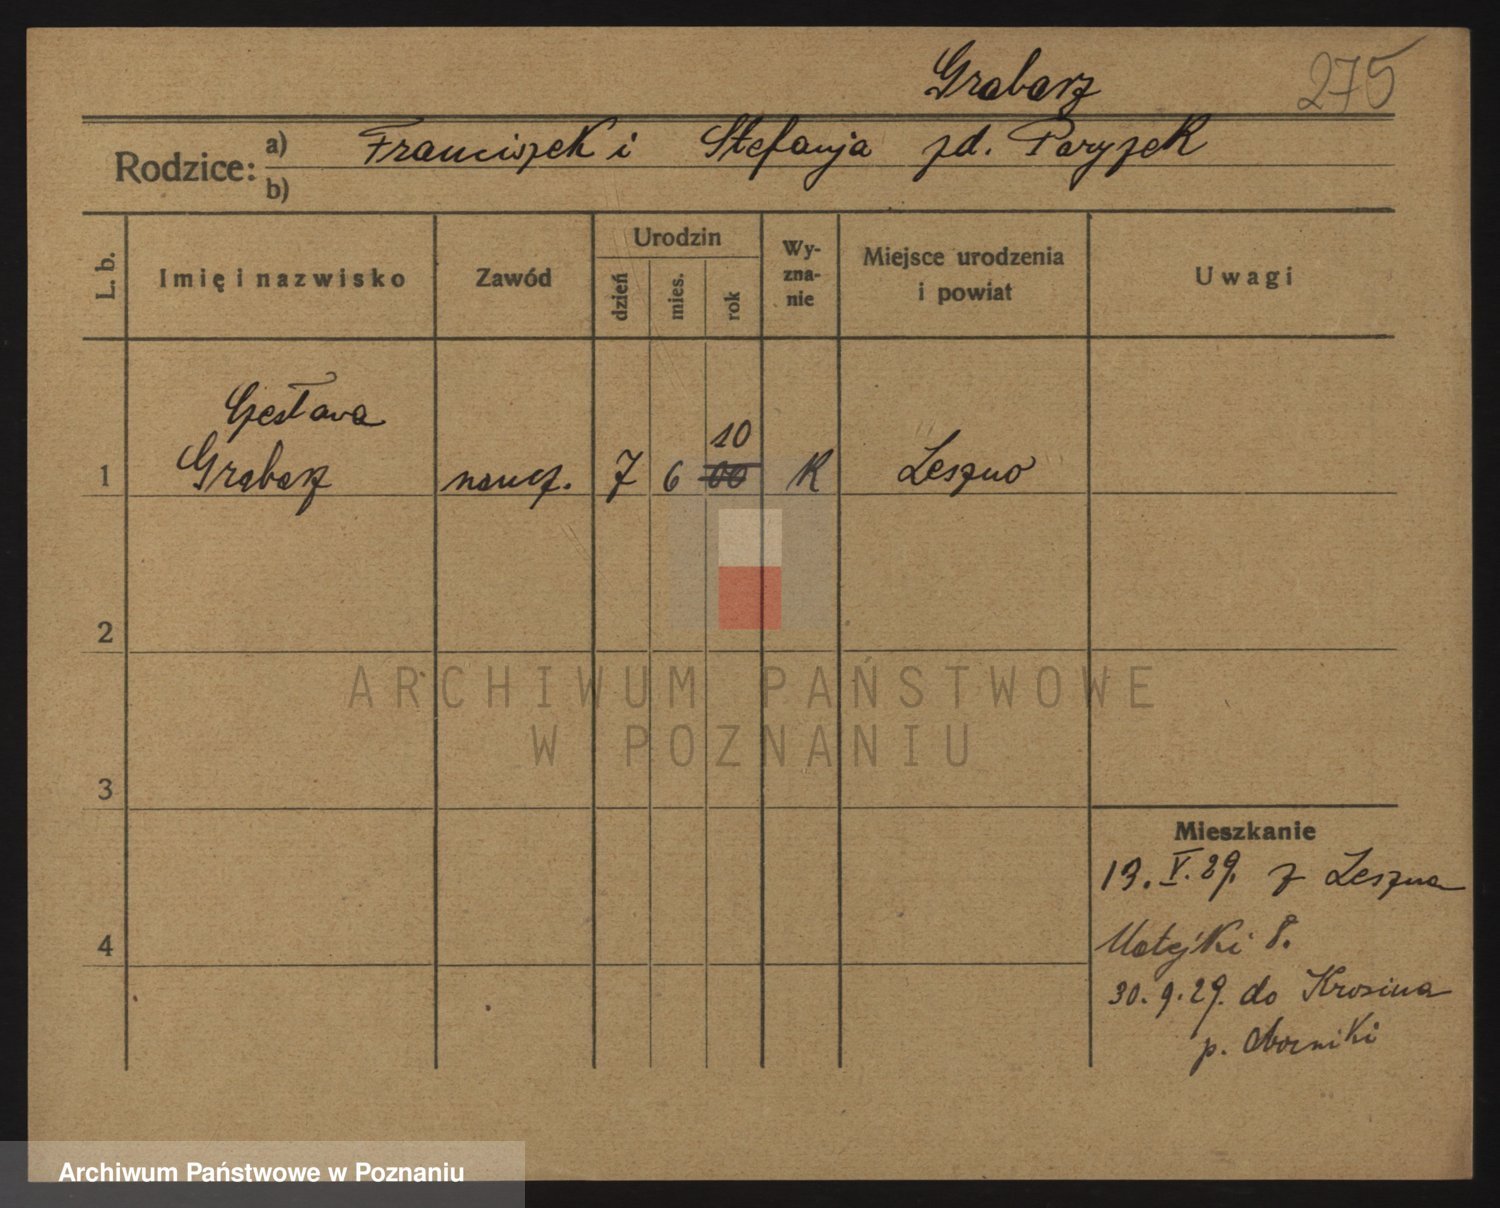 Grabarz 275
Rodzice: a) Franciszek i Stefanja zd. Paryzek
b)
L. b. Imię i nazwisko Zawód Urodzin dzień mies. rok Wy-zna-nie Miejsce urodzenia i powiat Uwagi
Czesława
1 Grabarz naucz. 7 6 00 10 K Leszno
2
ARCHIWUM PAŃSTWOWE
W POZNANIU
3
Mieszkanie
13. V. 29. z Leszna
4 Matejki 8.
30. 9. 29. do
p. Oborniki
Archiwum Państwowe w Poznaniu